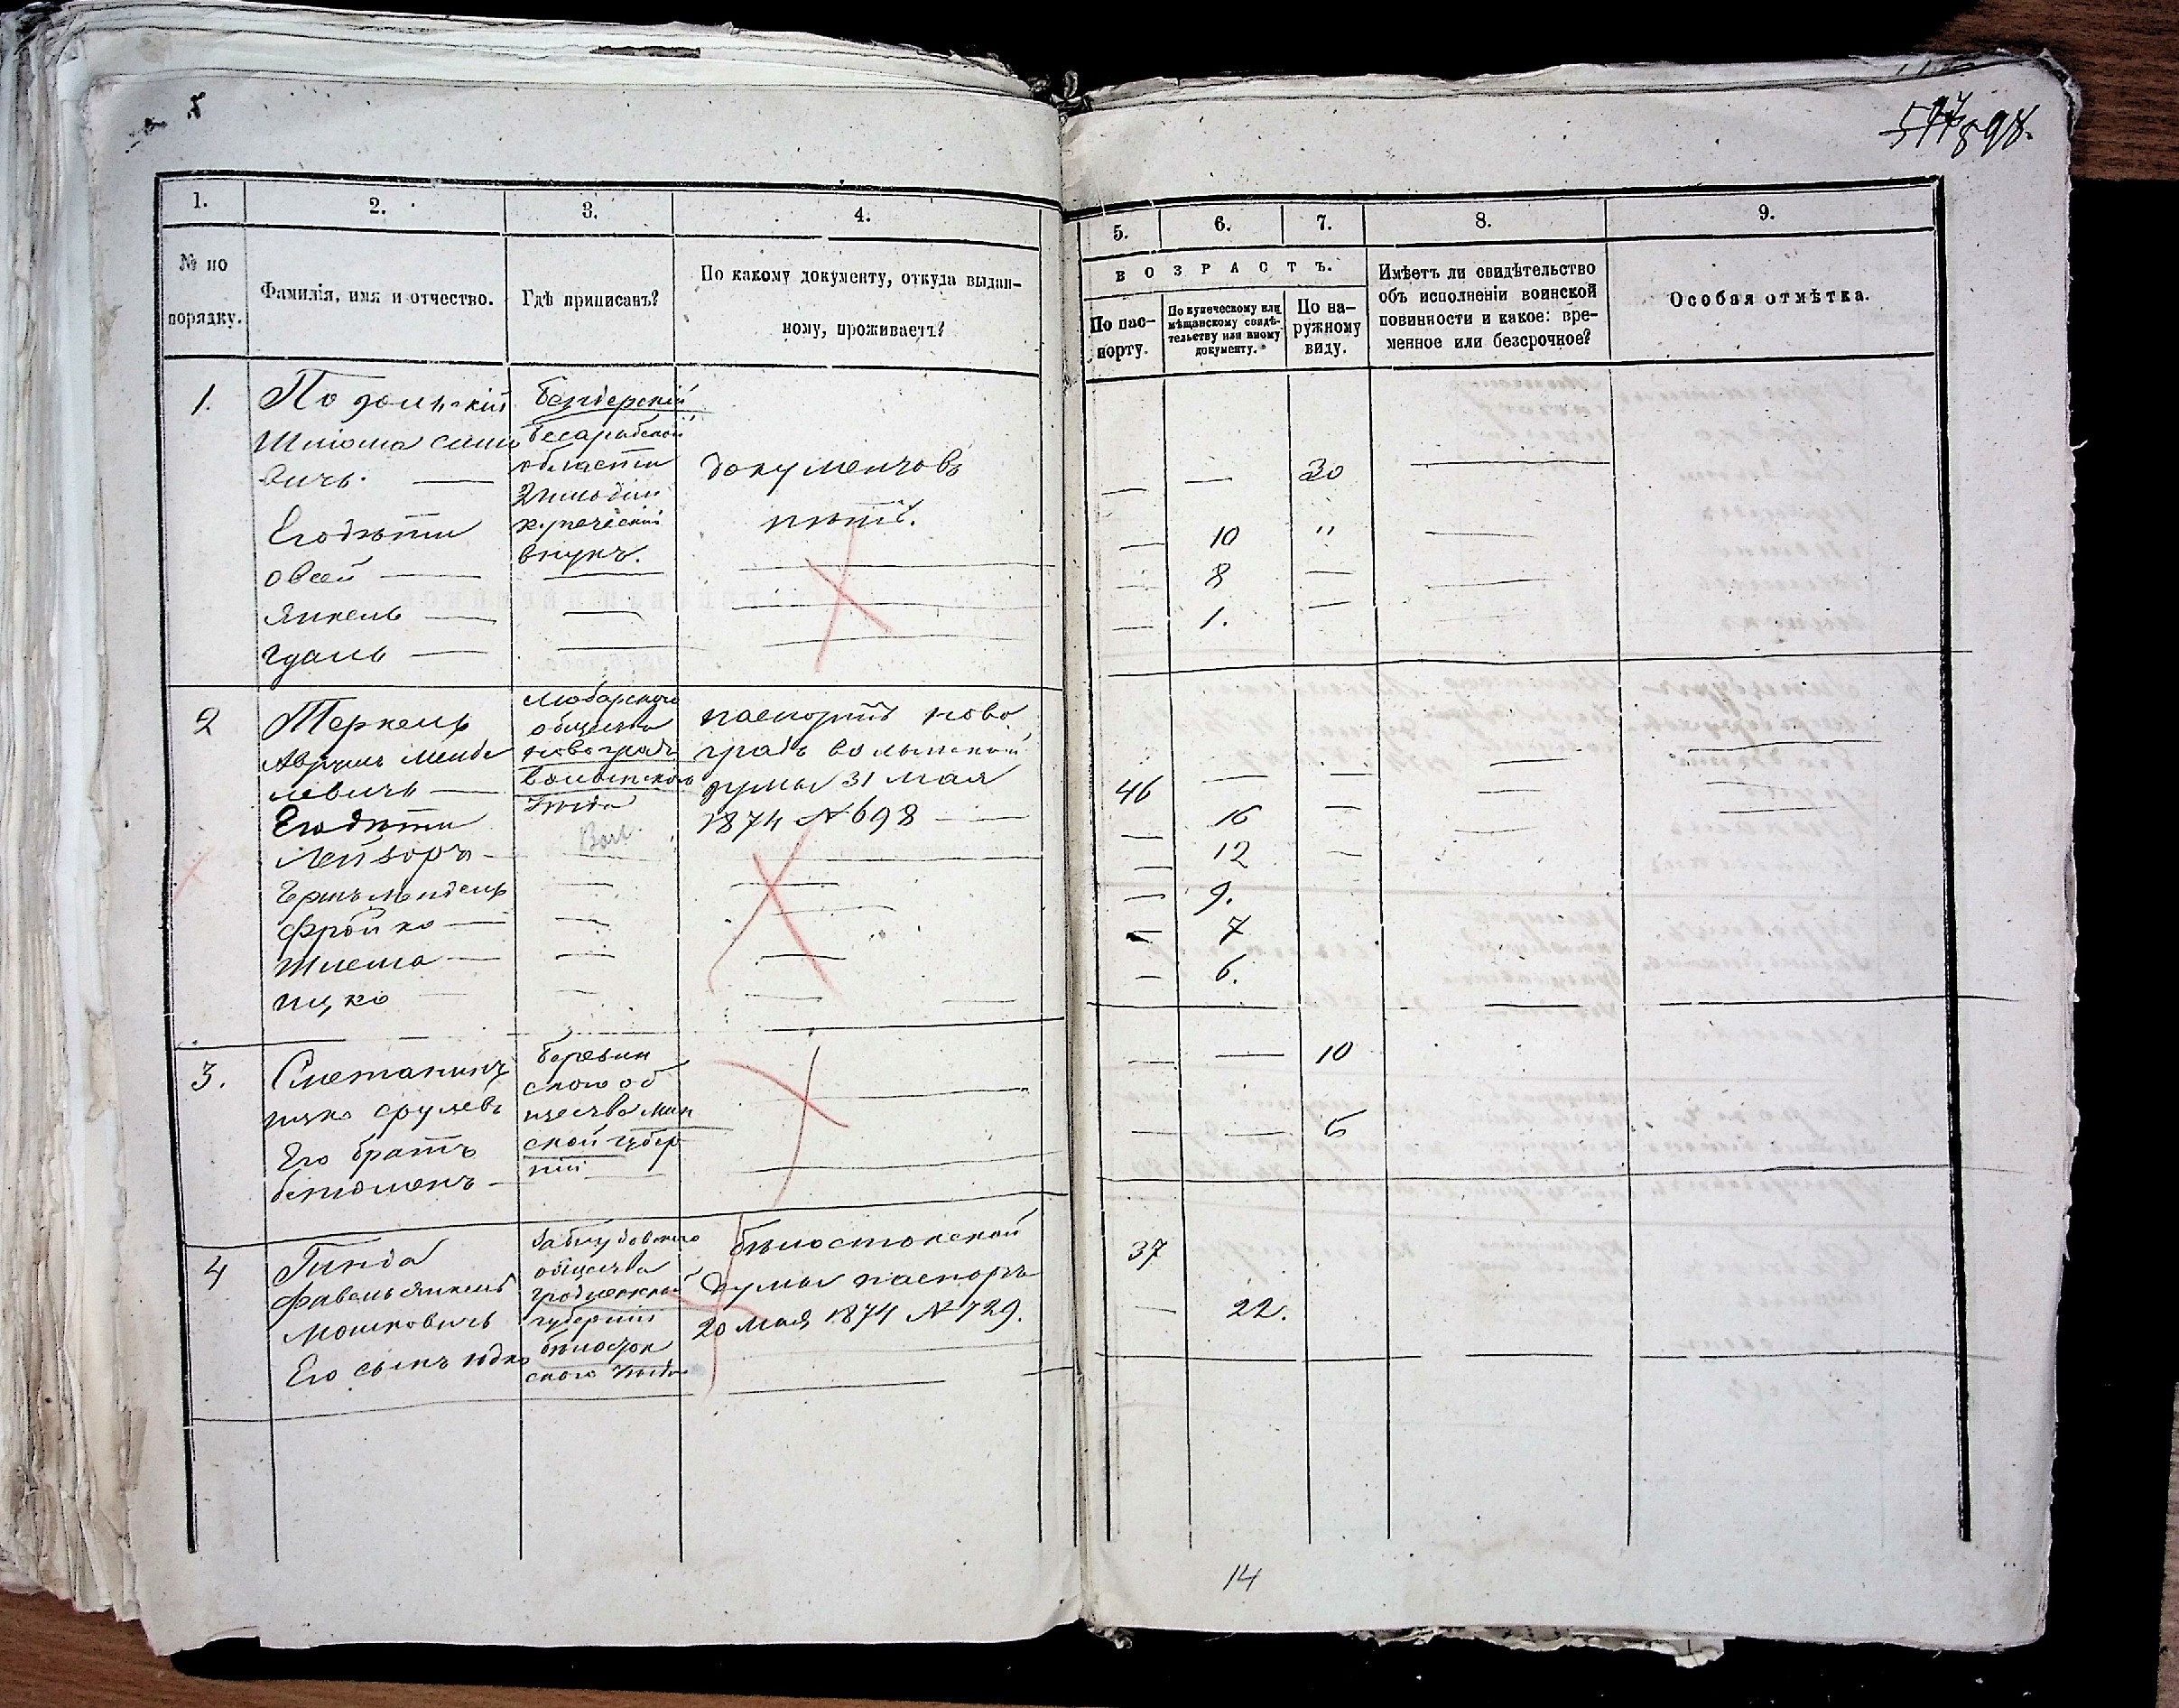 598.
1. 2. 3. 4.
№ по порядку.
Фамилія, имя и отчество.
Гдѣ приписанъ?
По какому документу, откуда выдан-
ному, проживаетъ?
5. 6. 7. 8. 9.
ВОЗРАСТЪ.
По пас-
порту.
По купеческому или
мѣщанскому свидѣ-
тельству или иному
документу.
По на-
ружному
виду.
Имѣетъ ли свидѣтельство
объ исполненіи воинской
повинности и какое: вре-
менное или безсрочное?
Особая отмѣтка.
1. Подольскій
Шліома
вичь. —
Его дѣти
Овсей —
Янкель —
Гдаль —
Бендерскій
Бесарабской
области
внукъ.
документовъ
нѣтъ.
— — 30 —
— 10 " —
— 8 — —
— 1. —
2 Теркель
Аврумъ Менде
левичь —
Его дѣти
Лейзоръ —
Гершъ Мендель
Фройко —
Шлема —
Ицко
Любарскаго
общества
Новоградъ
Волынскаго
уѣзда
паспортъ ново
градъ волынской
думы 31 Мая
1874 № 698 —
46 — — —
— 16 — —
— 12 — —
— 9.
— 7
— 6.
3. Сметанинъ
Ицко Срулевъ
Его братъ
Беніоменъ —
Березин
скаго об
щества Мин
ской губер
ніи
— — 10
— — 5
4 Гинда
Фавель Янкель
Мошковичь
Его сынъ Юдко
Заблудовскаго
общества
Гродненской
губерніи
бѣлосток
скаго уѣзда
бѣлостокской
Думы паспортъ
20 Мая 1874 № 729.
37
— 22.
14